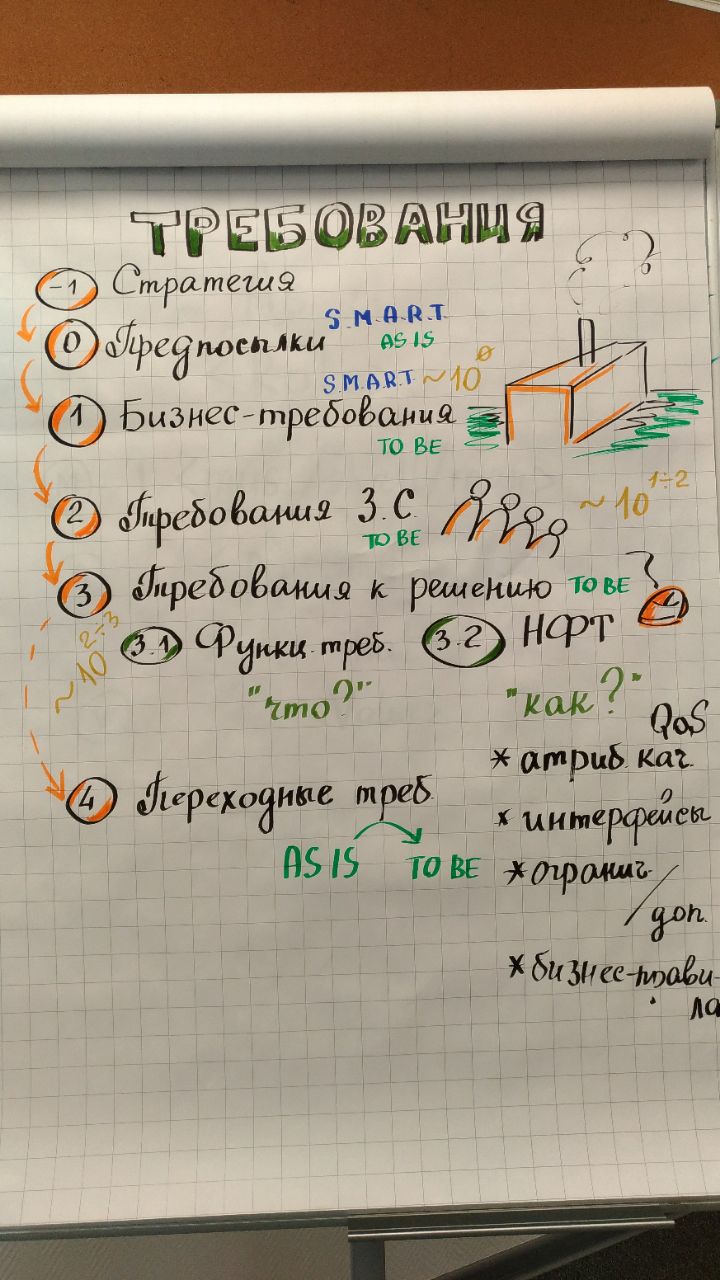 ТРЕБОВАНИЯ
-1 Стратегия
0 Предпосылки S.M.A.R.T
AS IS
S.M.A.R.T ~10^0
1 Бизнес-требования
TO BE
2 Требования З.С. ~10^1÷2
TO BE
3 Требования к решению TO BE
~10^2÷3
3.1 Функц. треб. 3.2 НФТ
"что?" "как?"
QoS
* атриб. кач.
4 Переходные треб.
* интерфейсы
AS IS TO BE
* огранич. /
доп.
* бизнес-прави-
ла